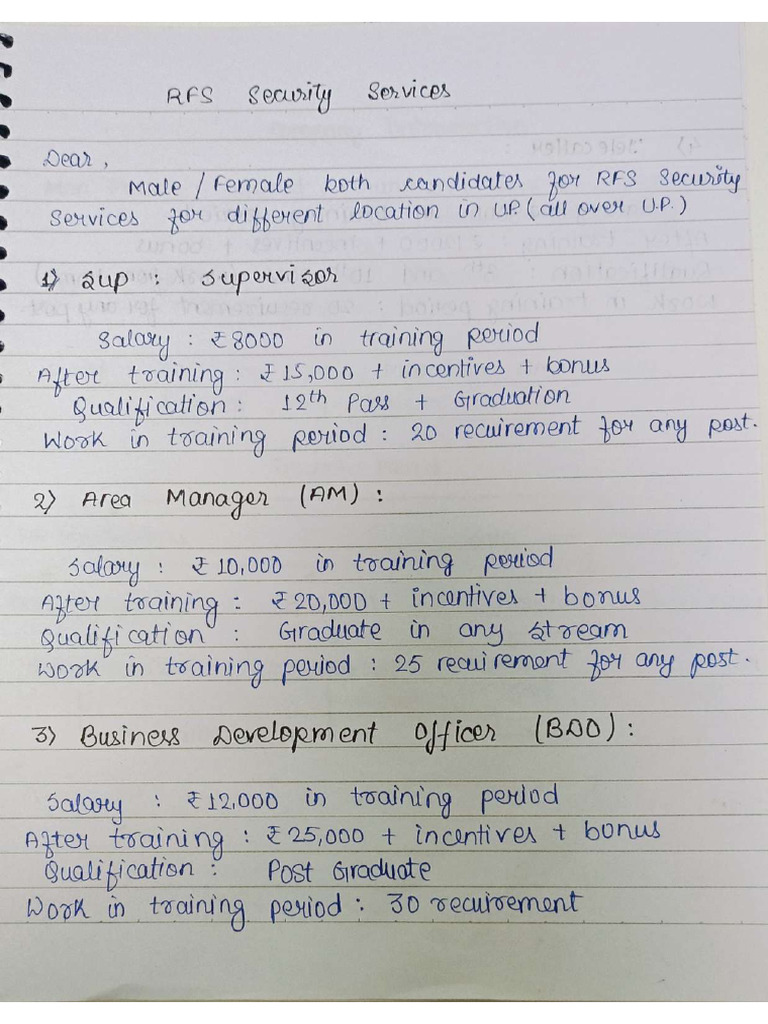 RFS Security Services
Dear,
Male / Female both candidates for RFS Security
Services for different location in U.P. (all over U.P.)
1) Sup : Supervisor
Salary : ₹8000 in training period
After training : ₹15,000 + incentives + bonus
Qualification : 12th Pass + Graduation
Work in training period : 20 recuirement for any post.
2) Area Manager (AM) :
Salary : ₹10,000 in training period
After training : ₹20,000 + incentives + bonus
Qualification : Graduate in any stream
Work in training period : 25 recuirement for any post.
3) Business Development Officer (BDO) :
Salary : ₹12,000 in training period
After training : ₹25,000 + incentives + bonus
Qualification : Post Graduate
Work in training period : 30 recuirement